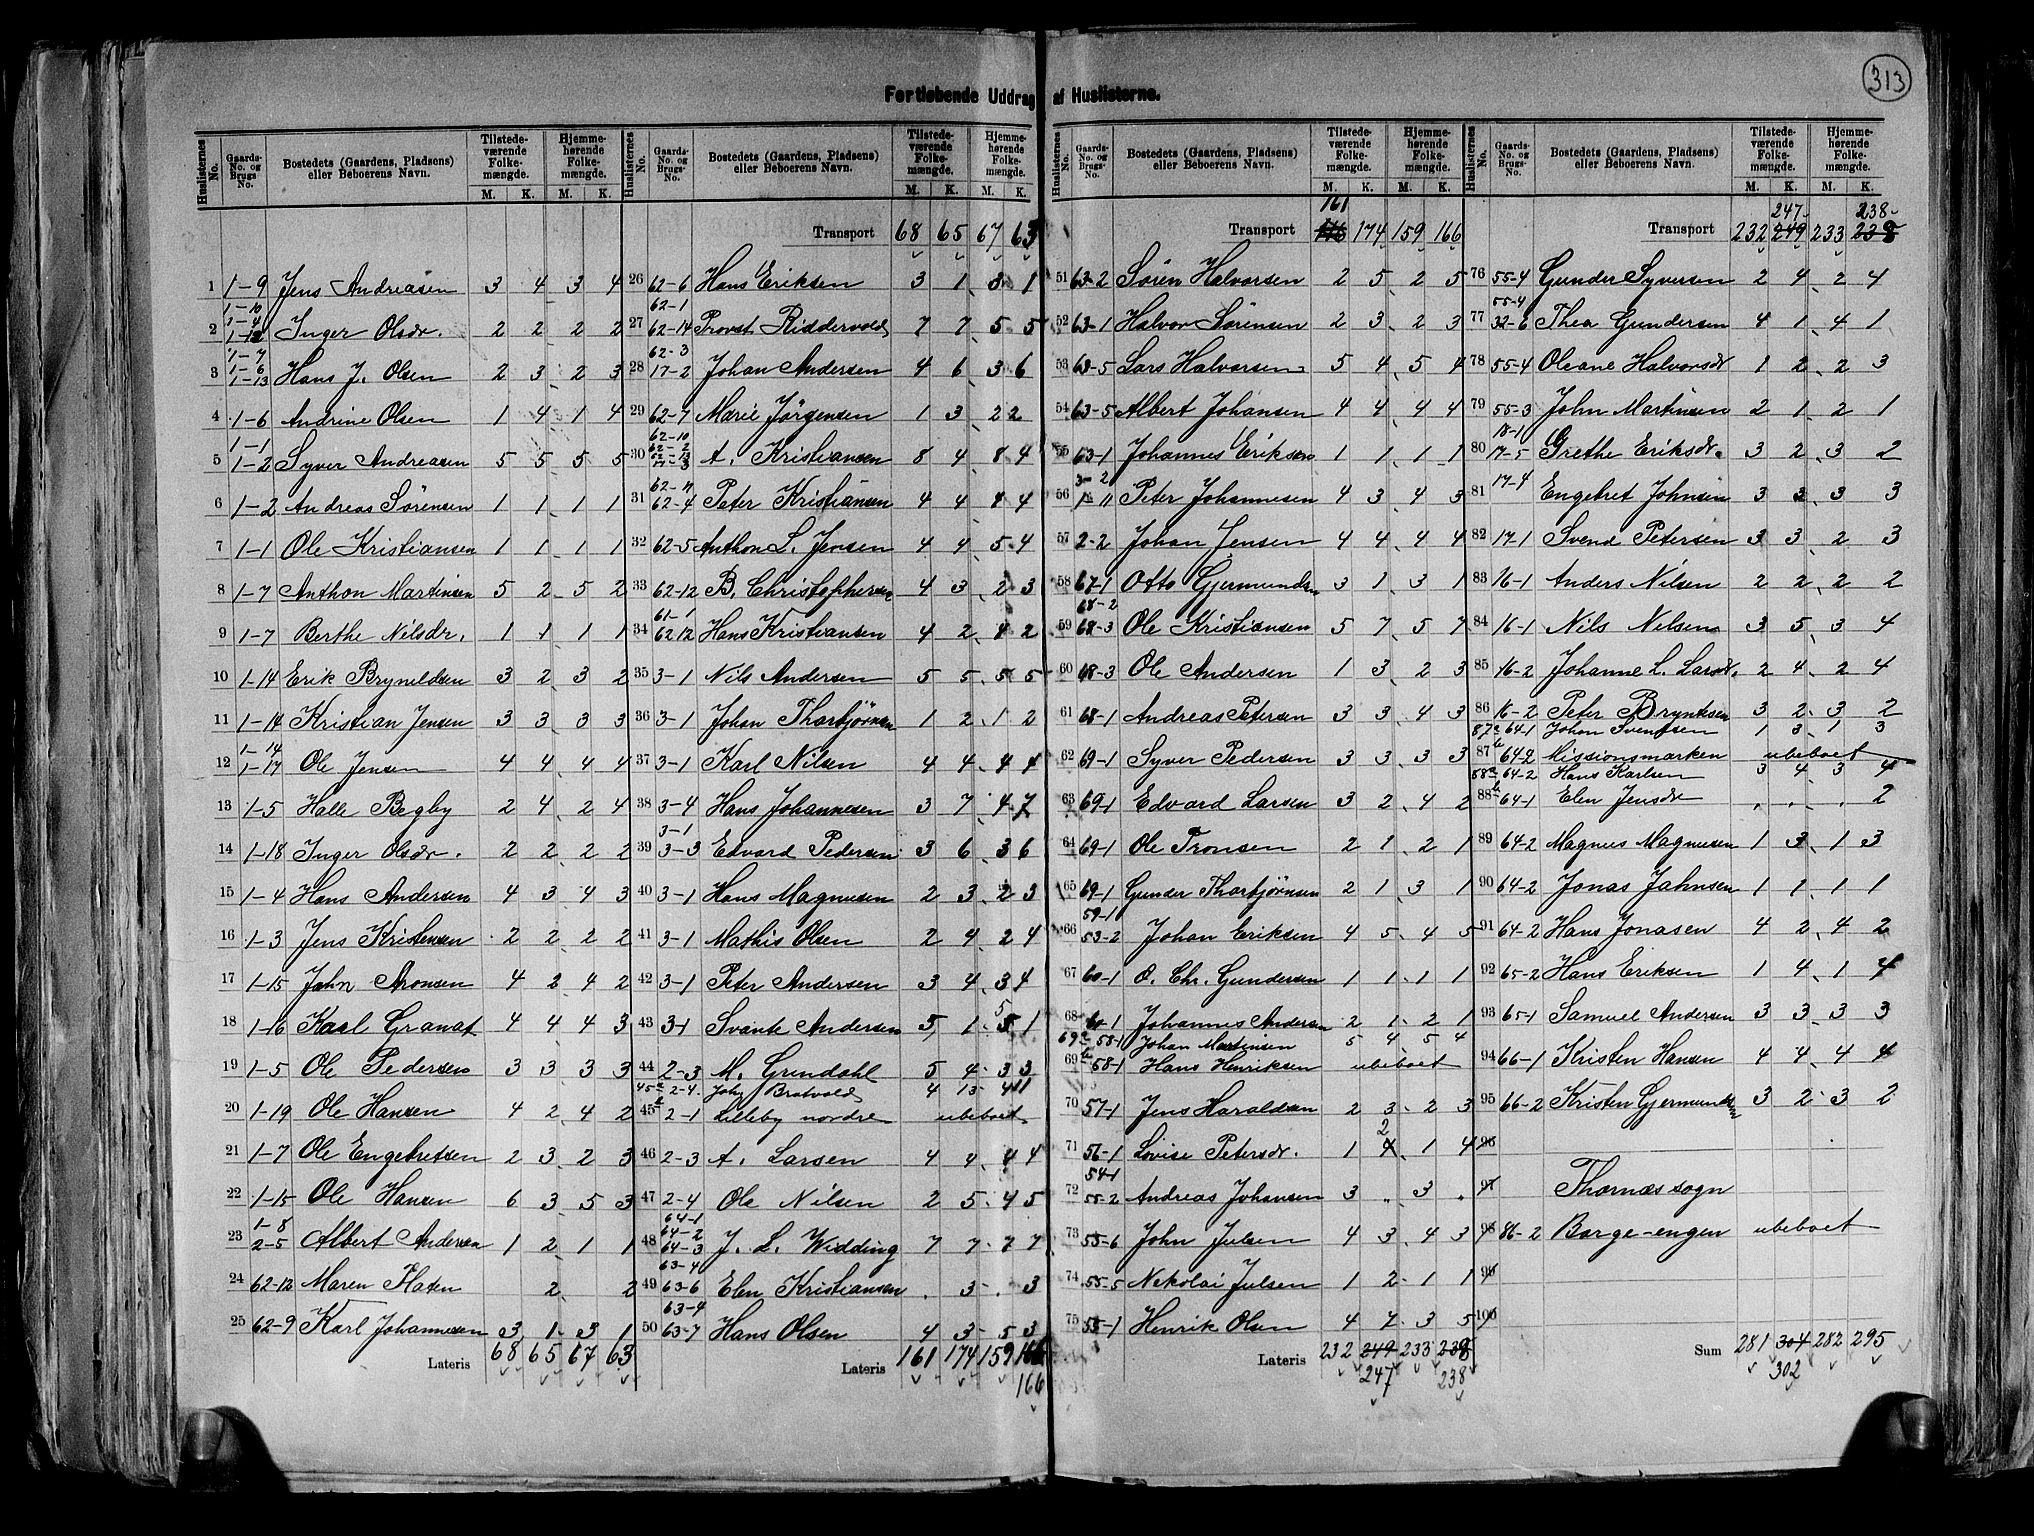 313
Fortløbende Uddrag af Huslisterne.
Huslisternes No. Gaards-No. og Brugs-No. Bostedets (Gaardens, Pladsens) eller Beboerens Navn. Tilstedeværende Folkemængde. M. K. Hjemmehørende Folkemængde. M. K.
1 1-9 Jens Andreasen 3 4 3 4
2 1-10 1-4 1-12 Inger Olsdr. 2 2 2 2
3 1-7 1-6 1-13 Hans J. Olsen 2 3 2 3
4 1-6 Andrine Olsen 1 4 1 4
5 1-1 1-2 Syver Andreasen 5 5 5 5
6 1-2 Andreas Sørensen 1 1 1 1
7 1-1 Ole Kristiansen 1 1 1 1
8 1-7 Anthon Martinsen 5 2 5 2
9 1-7 Berthe Nilsdr. 1 1 1 1
10 1-14 Erik Brynildsen 3 2 3 2
11 1-14 Kristian Jensen 3 3 3 3
12 1-14 1-17 Ole Jensen 4 4 4 4
13 1-5 Halle Begby 2 4 2 4
14 1-18 Inger Olsdr. 2 2 2 2
15 1-4 Hans Andersen 4 3 4 3
16 1-3 Jens Kristensen 2 2 2 2
17 1-15 John Aronsen 4 2 4 2
18 1-16 Karl Granat 4 4 4 3
19 1-5 Ole Pedersen 3 3 3 3
20 1-19 Ole Hansen 4 2 4 2
21 1-7 Ole Engebretsen 2 3 2 3
22 1-15 Ole Hansen 6 3 5 3
23 1-8 2-5 Albert Andersen 1 2 1 1
24 62-12 Maren Platen 2 2
25 62-9 Karl Johannesen 3 1 3 1
Lateris 68 65 67 63
Huslisternes No. Gaards-No. og Brugs-No. Bostedets (Gaardens, Pladsens) eller Beboerens Navn. Tilstedeværende Folkemængde. M. K. Hjemmehørende Folkemængde. M. K.
Transport 68 65 67 63
26 62-6 Hans Eriksen 3 1 3 1
27 62-1 62-14 Provst Riddervold 7 7 5 5
28 62-3 17-2 Johan Andersen 4 6 3 6
29 62-7 Marie Jörgensen 1 3 2 2
30 62-10 62-2 62-13 17-3 A. Kristiansen 8 4 8 4
31 62-11 62-4 Peter Kristiansen 4 4 4 4
32 62-5 Anthon L. Jensen 4 4 5 4
33 62-12 B. Christophersen 4 3 2 3
34 61-1 62-12 Hans Kristiansen 4 2 4 2
35 3-1 Nils Andersen 5 5 5 5
36 3-1 Johan Thorbjørnsen 1 2 1 2
37 3-1 Karl Nilsen 4 4 4 4
38 3-4 Hans Johannesen 3 7 4 7
39 3-1 3-3 Edvard Pedersen 3 6 3 6
40 3-1 Hans Magnusen 2 3 2 3
41 3-1 Mathis Olsen 2 4 2 4
42 3-1 Peter Andersen 3 4 3 4
43 3-1 Svante Andersen 5 1 5 1
44 2-3 M. Grindahl 5 4 3 3
45a 2-4 Johs Bratvold 4 13 4 11
45b 2-1 Lilleby nordre ubeboet
46 2-3 A. Larsen 4 4 4 4
47 2-4 Ole Nilsen 2 5 4 5
48 64-1 64-2 64-3 J. L. Widding 7 7 7 7
49 63-4 63-6 Elen Kristiansen . 3 . 3
50 63-4 63-7 Hans Olsen 4 3 5 3
Lateris 161 174 159 166
166
Huslisternes No. Gaards-No. og Brugs-No. Bostedets (Gaardens, Pladsens) eller Beboerens Navn. Tilstedeværende Folkemængde. M. K. Hjemmehørende Folkemængde. M. K.
161
Transport 174 159 166
51 63-2 Sören Halvorsen 2 5 2 5
52 63-1 Halvor Sörensen 2 3 2 3
53 63-5 Lars Halvorsen 5 4 5 4
54 63-5 Albert Johansen 4 4 4 4
55 63-1 Johannes Eriksen 1 1 1 1
56 3-2 1-11 Peter Johannesen 4 3 4 3
57 2-2 Johan Jensen 4 4 4 4
58 67-1 Otto Gjermundsen 3 1 3 1
59 68-2 68-3 Ole Kristiansen 5 7 5 7
60 68-3 Ole Andersen 1 3 2 3
61 68-1 Andreas Petersen 3 3 4 3
62 69-1 Syver Pedersen 3 3 3 3
63 69-1 Edvard Larsen 3 2 4 2
64 69-1 Ole Tronsen 2 1 2 1
65 69-1 Gunder Thorbjørnsen 2 1 3 1
66 59-1 53-2 Johan Eriksen 4 5 4 5
67 60-1 O. Chr. Gundersen 1 1 1 1
68 60-1 Johannes Andersen 2 1 2 1
69a 58-1 Johan Martinsen 5 4 5 4
69b 58-1 Hans Henriksen ubeboet
70 57-1 Jens Haraldsen 2 3 2 3
71 56-1 Lovise Petersdr. 1 2 1 4
72 54-1 55-2 Andreas Johansen 3 . 3 .
73 55-6 John Julsen 4 3 4 3
74 55-5 Nekolai Julsen 1 2 1 1
75 55-1 Henrik Olsen 4 7 3 5
Lateris 232 249 233 238
247 238
Huslisternes No. Gaards-No. og Brugs-No. Bostedets (Gaardens, Pladsens) eller Beboerens Navn. Tilstedeværende Folkemængde. M. K. Hjemmehørende Folkemængde. M. K.
247 238
Transport 232 249 233 238
76 55-4 Gunder Syversen 2 4 2 4
77 55-4 32-6 Thea Gundersen 4 1 4 1
78 55-4 Oleane Halvorsdr 1 2 2 3
79 55-3 John Martinsen 2 1 2 1
80 18-1 17-5 Grethe Eriksdr. 3 2 3 2
81 17-4 Engebret Johnsen 3 3 3 3
82 17-1 Svend Petersen 3 3 2 3
83 16-1 Anders Nilsen 2 2 2 2
84 16-1 Nils Nilsen 3 5 3 4
85 16-2 Johanne L. Larsdr. 2 4 2 4
86 16-2 Peter Bryntesen 3 2 3 2
87a 64-1 Johan Svendsen 1 3 1 3
87b 64-2 Missionsmarken ubeboet
88a 64-2 Hans Karlsen 3 4 3 4
88b 64-1 Elen Jensdr . . . 2
89 64-2 Magnus Magnusen 1 3 1 3
90 64-2 Jonas Jahnsen 1 1 1 1
91 64-2 Hans Jonasen 4 2 4 2
92 65-2 Hans Eriksen 1 4 1 4
93 65-1 Samuel Andersen 3 3 3 3
94 66-1 Kristen Hansen 4 4 4 4
95 66-2 Kristen Gjermundsen 3 2 3 2
96
97 Thornæs sogn
98 86-2 Borge-engen ubeboet
99
100
Sum 281 304 282 295
302